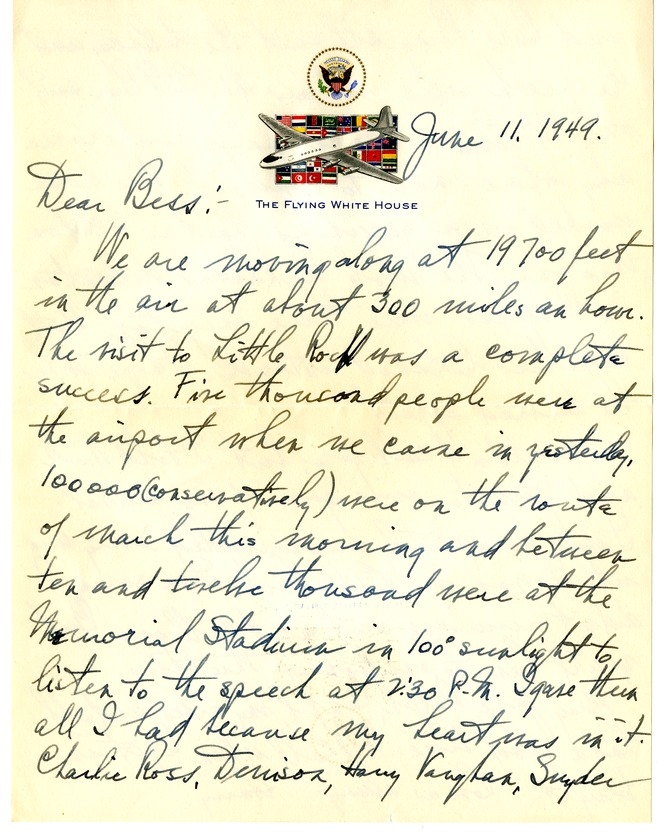 June 11, 1949.
THE FLYING WHITE HOUSE
Dear Bess:-
We are moving along at 19700 feet
in the air at about 300 miles an hour.
The visit to Little Rock was a complete
success. Five thousand people were at
the airport when we came in yesterday,
100000 (conservatively) were on the route
of march this morning and between
ten and twelve thousand were at the
Memorial Stadium in 100° sunlight to
listen to the speech at 2:30 P.M. I gave them
all I had because my heart was in it.
Charlie Ross, Denison, Harry Vaughan, Snyder